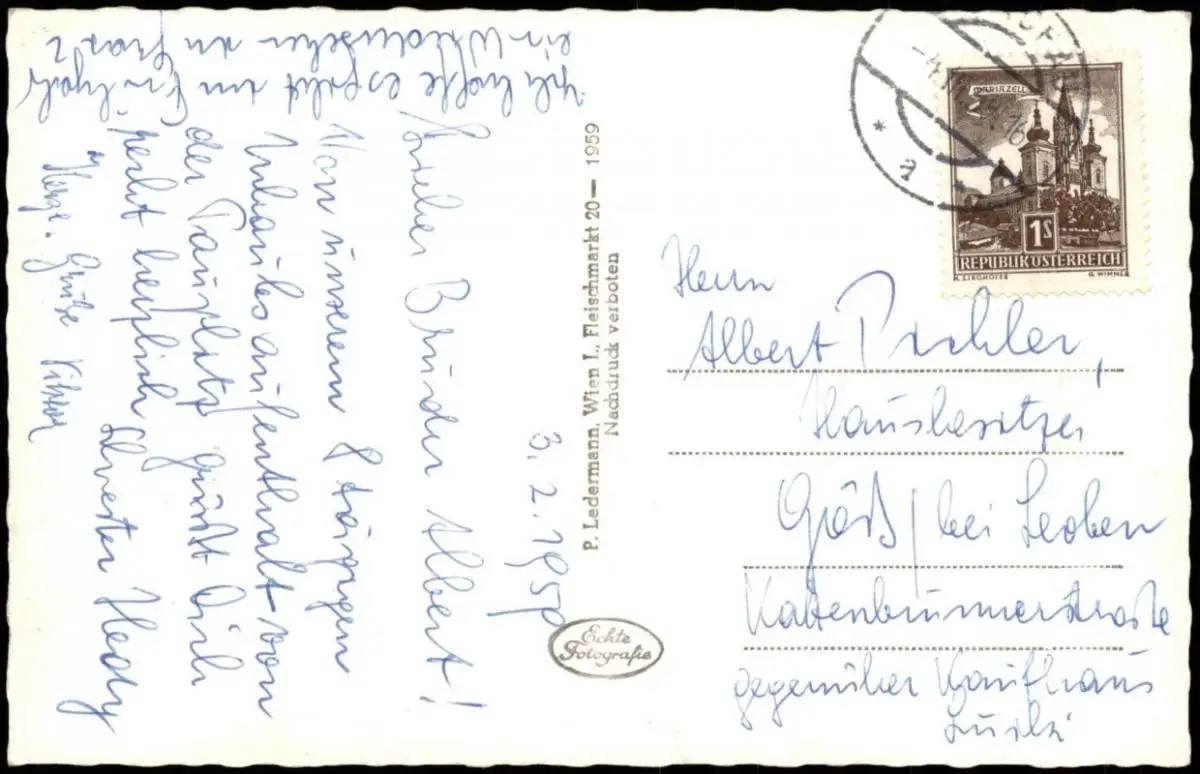 3. 2. 195
Lieber Bruder Albert!
Von unserem 8 tägigen
Urlaubsaufenthalt von
der Tauplitz grüßt Dich
recht herzlich Schwester Hedy
Herzl. Grüße Viktor
Ich hoffe es gibt im Frühjahr
ein Wiedersehen in Graz
P. Ledermann, Wien I., Fleischmarkt 20— 1959
Nachdruck verboten
Echte
Fotografie
MARIAZELL
1S
REPUBLIK ÖSTERREICH
G. WIMMER
Herrn
Albert Pichler,
Hausbesitzer
Göß / bei Leoben
Kaltenbrunnerstraße
gegenüber Kaufhaus